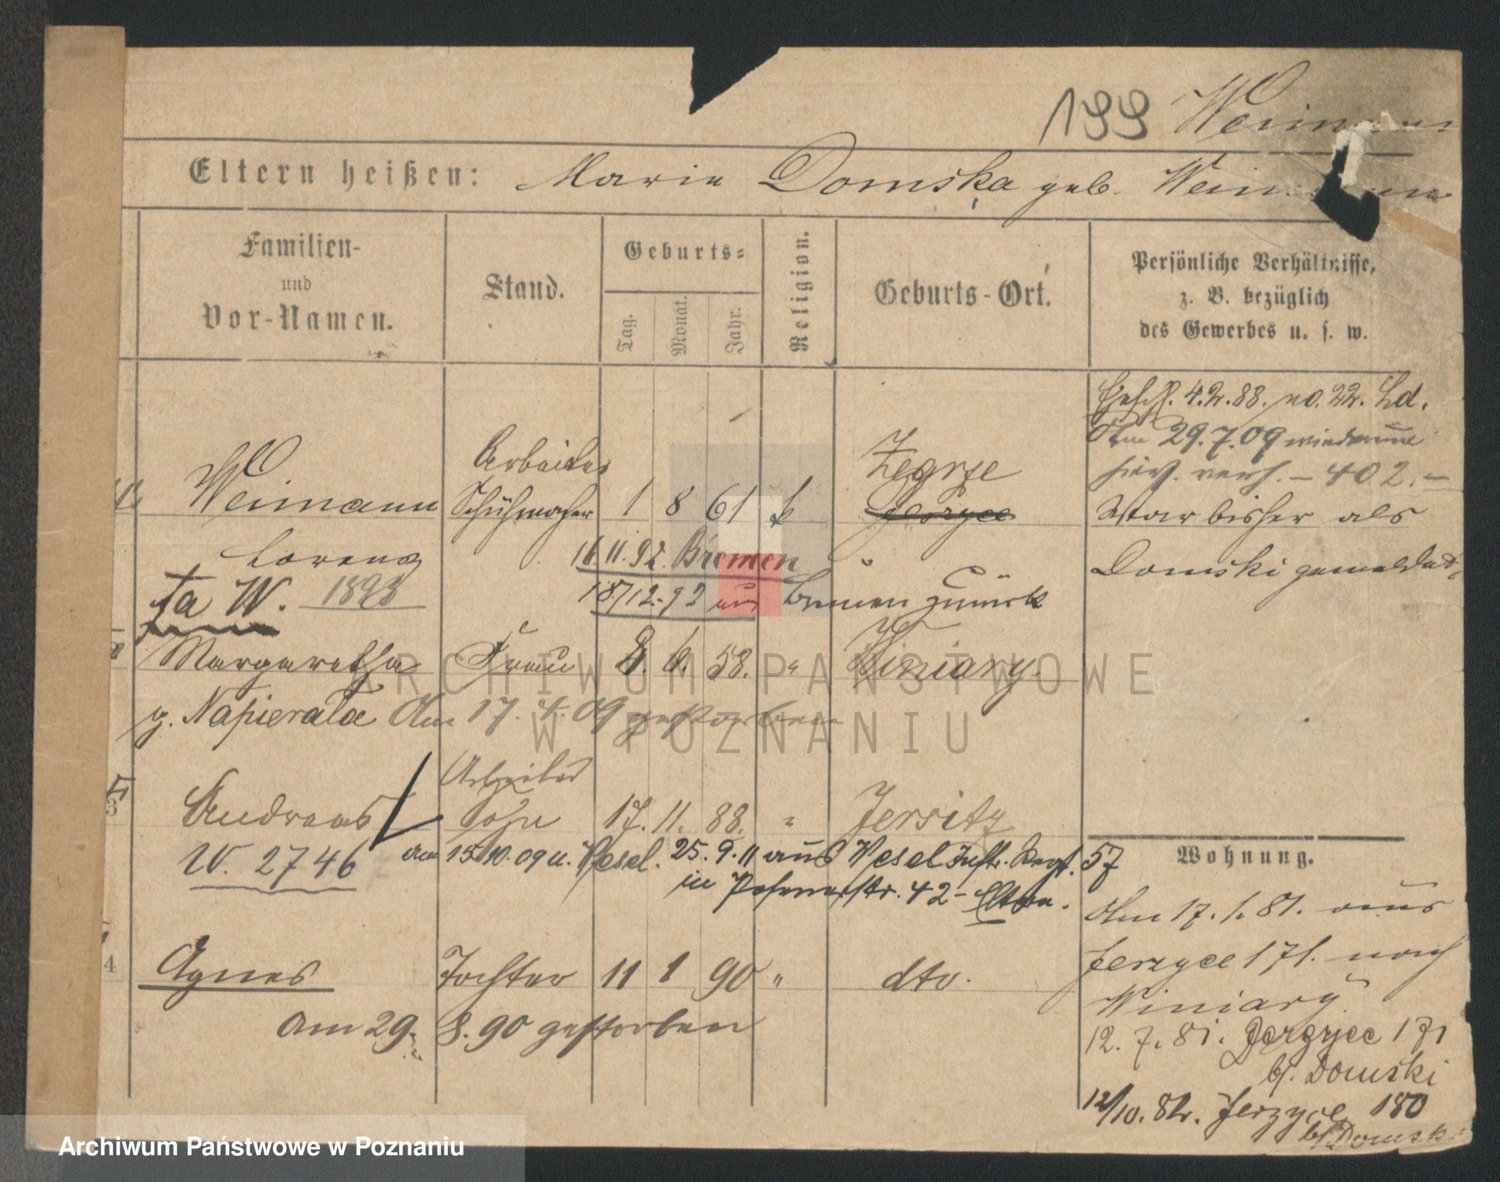 199 Weimann
Eltern heißen: Marie Domska geb. Weimann
Familien-
und
Vor-Namen.
Stand.
Geburts-
Tag.
Monat.
Jahr.
Religion.
Geburts-Ort.
Persönliche Verhältnisse,
z. B. bezüglich
des Gewerbes u. s. w.
4.2.88. no. 22. Ld.
Am 29.7.09 wiederum
verh. – 402. –
War bisher als
Domski gemeldet,
Weimann
Lorenz
Arbeiter
Schuhmacher
1 8 61 k
Zegrze
Jerzyce
16.11.92. Bremen "
18/12.92 aus Bremen zurück
fa W. 1893
Margaretha Frau 8. 6. 58. " Winiary.
g. Napierala Am 17. 4. 09 gestorben
3
Andreas
Arbeiter
Sohn
17. 11. 88. " Jersitz
W. 2746 am 15.10.09 u. Wesel. 25.9.11 aus Wesel Inftr. Regt. 57
in Posenerstr. 42 – Eltern.
4
Agnes Tochter 11 1 90 " dto.
am 29. 8. 90 gestorben
Wohnung.
Am 17. 1. 81. aus
Jerzyce 171. nach
Winiary.
12. 7. 81. Jerzyce 171
b/. Domski
12/10. 82. Jerzyce 180
b/ Domski
ARCHIWUM PAŃSTWOWE
W POZNANIU
Archiwum Państwowe w Poznaniu